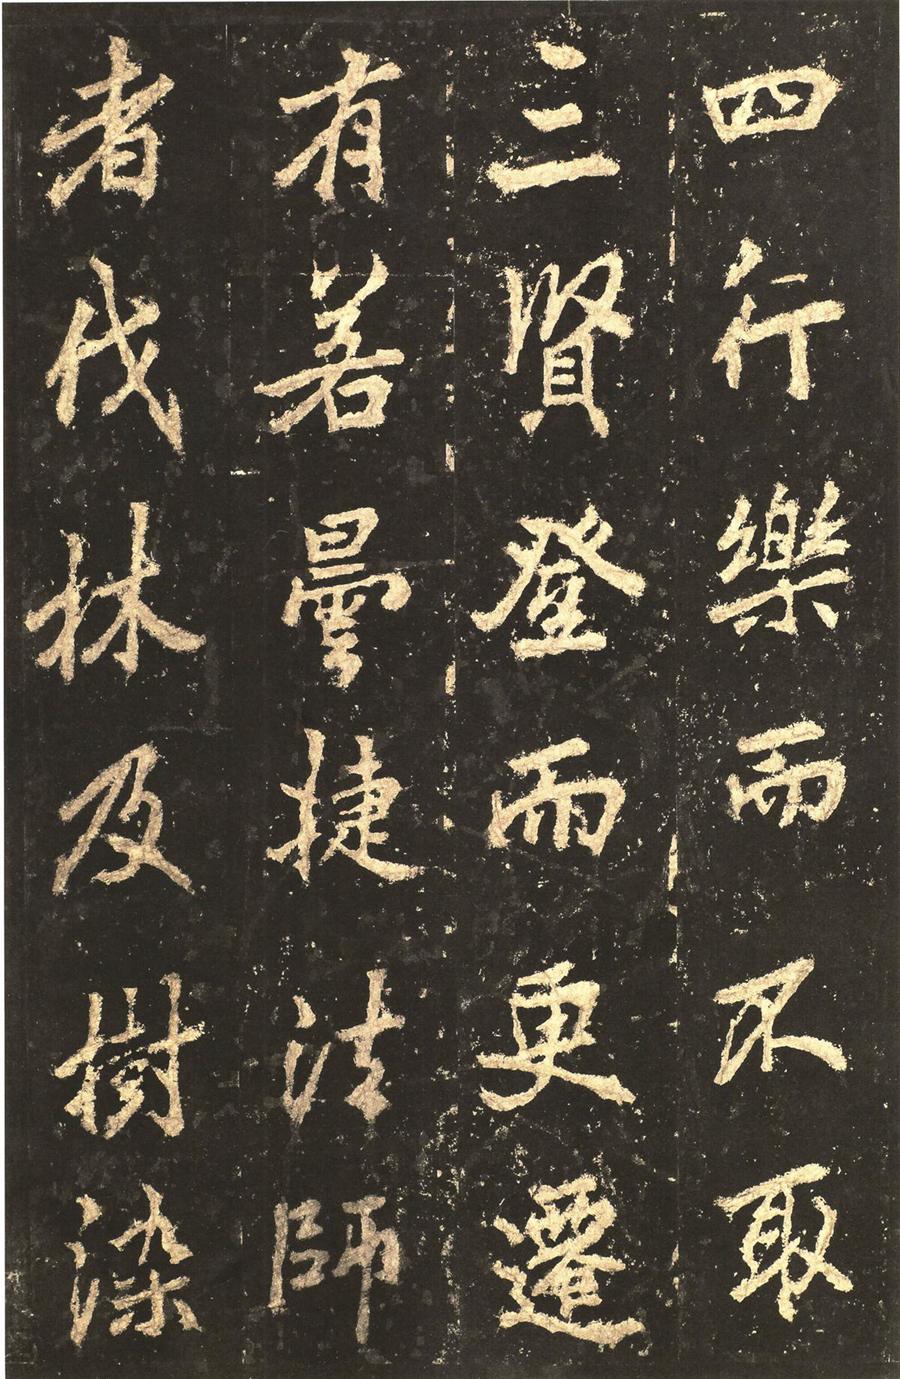 四行樂而不取
三賢登而更遷
有若曇捷法師
者伐林及樹染